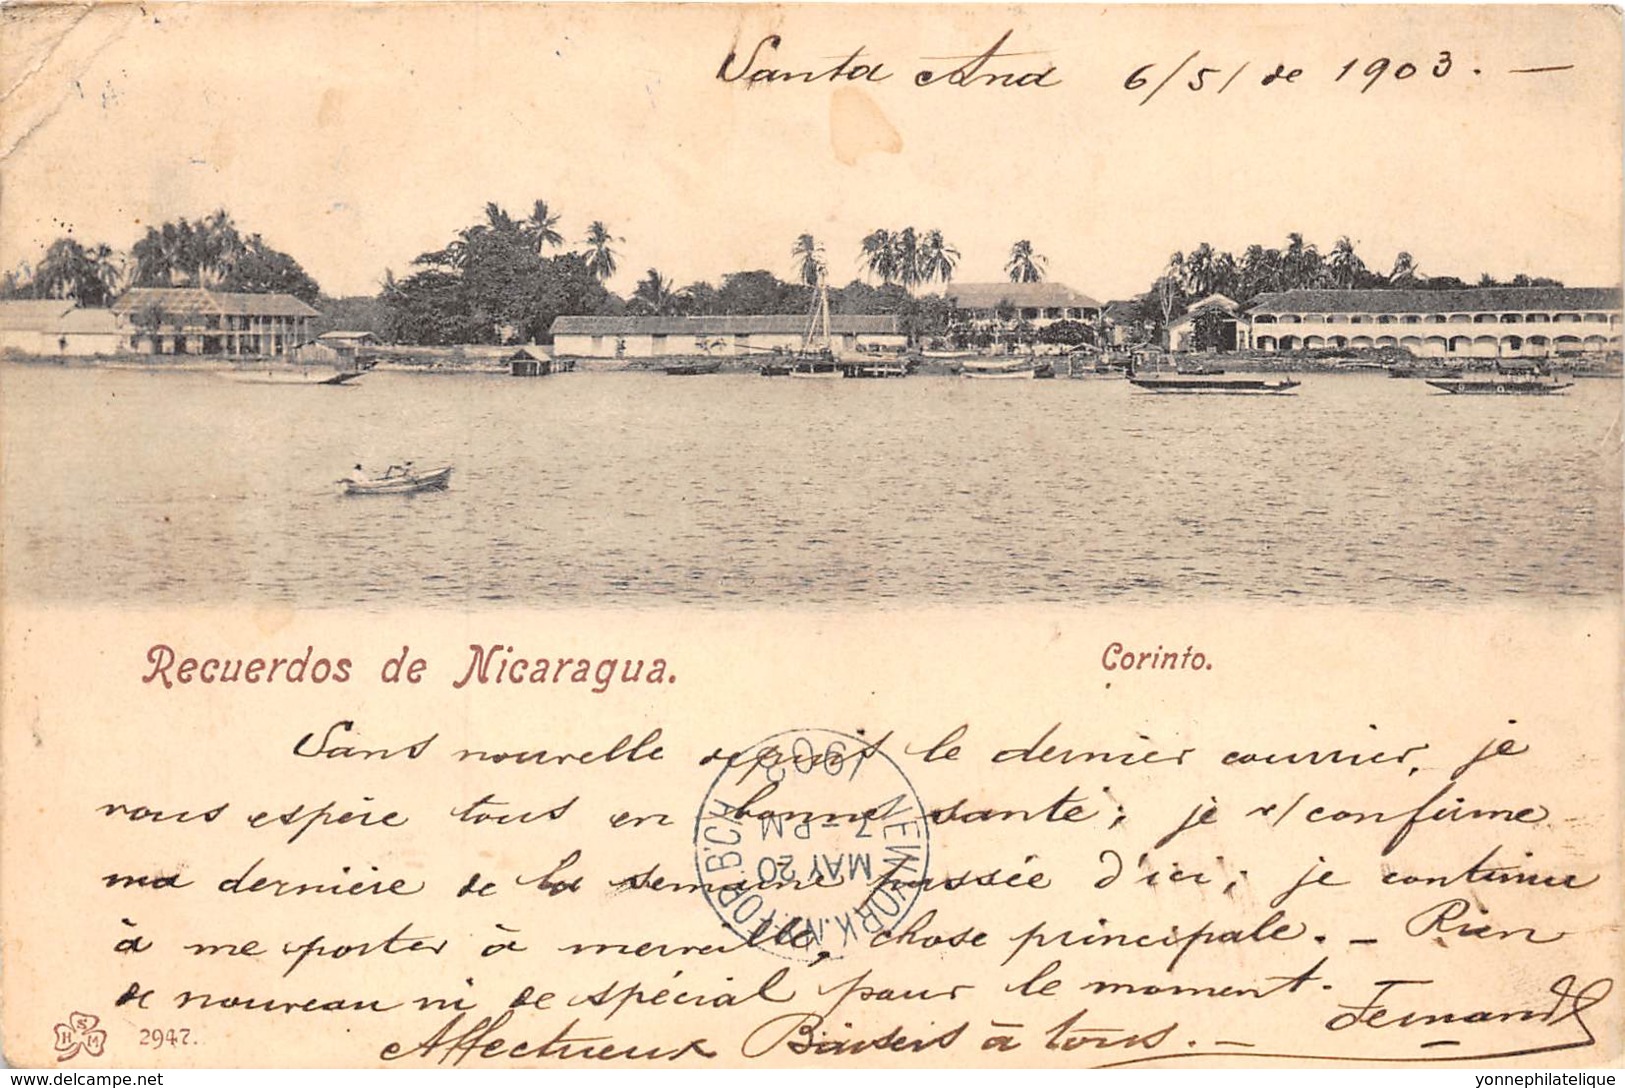 Santa Ana 6/5/ de 1903. —
Recuerdos de Nicaragua.
Corinto.
Sans nouvelle depuis le dernier courrier, je
vous espère tous en bonne santé; je v/ confirme
ma dernière de la semaine passée d'ici; je continue
à me porter à merveille, chose principale. - Rien
de nouveau ni de spécial pour le moment.
Affectueux Baisers à tous. - Fernand
NEW YORK, N.Y. FOR. B.CH.
MAY 20
7-PM
1903
H S M
2947.
www.delcampe.net
yonnephilatelique